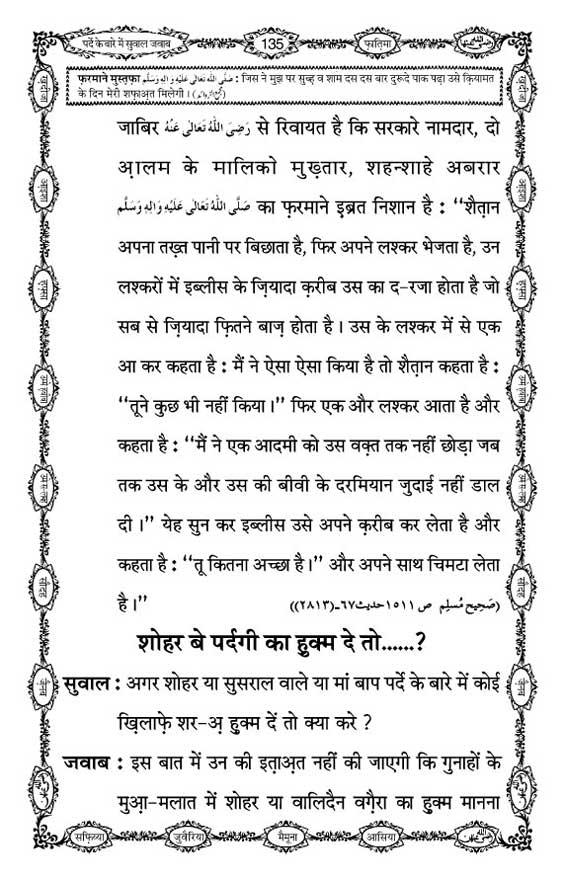 पर्दे के बारे में सुवाल जवाब
135
फ़ातिमा
फ़रमाने मुस्तफ़ा صَلَّى اللهُ تَعَالٰى عَلَيْهِ وَاٰلِهٖ وَسَلَّم : जिस ने मुझ पर सुब्ह व शाम दस दस बार दुरूदे पाक पढ़ा उसे क़ियामत
के दिन मेरी शफ़ाअ़त मिलेगी।
जाबिर رَضِىَ اللهُ تَعَالٰى عَنْهُ से रिवायत है कि सरकारे नामदार, दो
आ़लम के मालिको मुख़्तार, शहन्शाहे अबरार
صَلَّى اللهُ تَعَالٰى عَلَيْهِ وَاٰلِهٖ وَسَلَّم का फ़रमाने इब्रत निशान है : ‘‘शैत़ान
अपना तख़्त पानी पर बिछाता है, फिर अपने लश्कर भेजता है, उन
लश्करों में इब्लीस के ज़ियादा क़रीब उस का द-रजा होता है जो
सब से ज़ियादा फ़ितने बाज़ होता है। उस के लश्कर में से एक
आ कर कहता है : मैं ने ऐसा ऐसा किया है तो शैत़ान कहता है :
‘‘तूने कुछ भी नहीं किया।’’ फिर एक और लश्कर आता है और
कहता है : ‘‘मैं ने एक आदमी को उस वक़्त तक नहीं छोड़ा जब
तक उस के और उस की बीवी के दरमियान जुदाई नहीं डाल
दी।’’ येह सुन कर इब्लीस उसे अपने क़रीब कर लेता है और
कहता है : ‘‘तू कितना अच्छा है।’’ और अपने साथ चिमटा लेता
है।’’ (صَحِيح مُسلِم ص ۱۵۱۱ حديث ۶۷ـ(۲۸۱۳))
शोहर बे पर्दगी का हुक्म दे तो......?
सुवाल : अगर शोहर या सुसराल वाले या मां बाप पर्दे के बारे में कोई
ख़िलाफ़े शर-अ़ हुक्म दें तो क्या करे ?
जवाब : इस बात में उन की इत़ाअ़त नहीं की जाएगी कि गुनाहों के
मुआ़-मलात में शोहर या वालिदैन वग़ैरा का हुक्म मानना
सफ़िय्या
जुवैरिया
मैमूना
आसिया